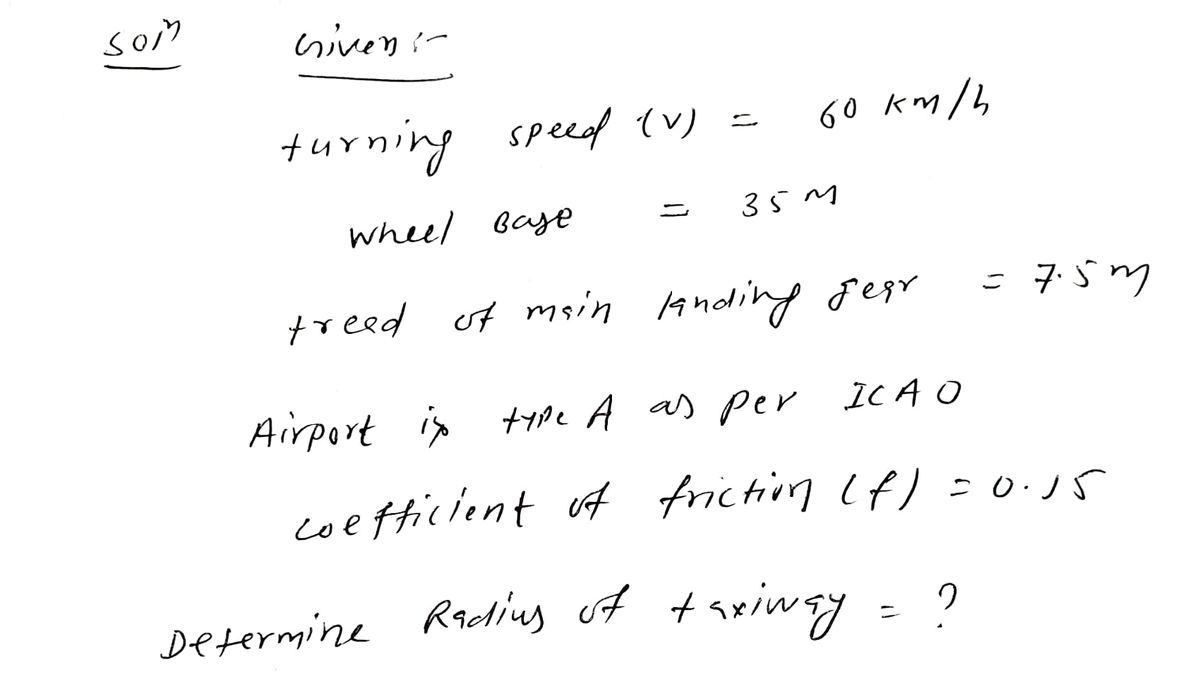 Soln Given :-
turning speed (v) = 60 km/h
wheel Base = 35 M
treed of main landing gear = 7.5 m
Airport is type A as per ICAO
coefficient of friction (f) = 0.15
Determine Radius of taxiway = ?